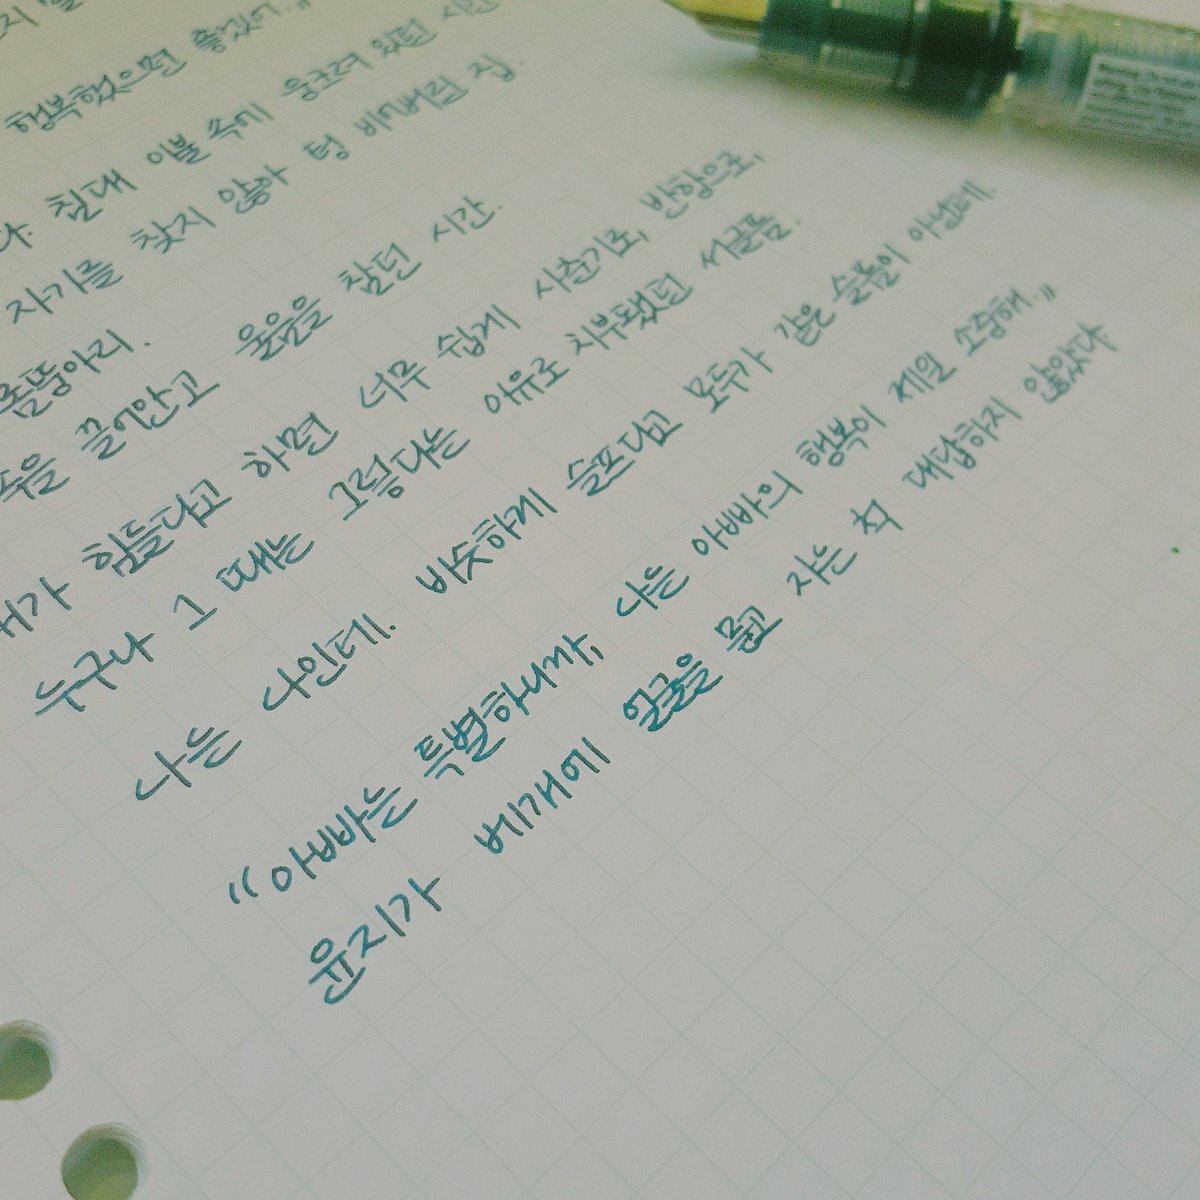 행복했으면 좋겠어."
다. 침대 이불 속에 웅크려 있던 시간
자기를 찾지 않아 텅 비어버린 집.
몸뚱아리.
끌어안고 울음을 참던 시간.
힘들다고 하면 너무 쉽게 사춘기로, 반항으로,
누구나 그 때는 그렇다는 이유로 치부됐던 서글픔.
나는 나인데. 비슷하게 슬프다고 모두가 같은 슬픔이 아닌데.
"아빠는 특별하니까, 나는 아빠의 행복이 제일 소중해."
윤지가 베개에 얼굴을 묻고 자는 척 대답하지 않았다